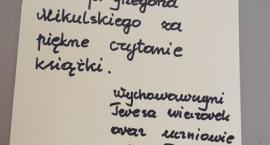 p. Grzegorza
Mikulskiego za
piękne czytanie
książki.
Wychowawczyni
Teresa
oraz uczniowie